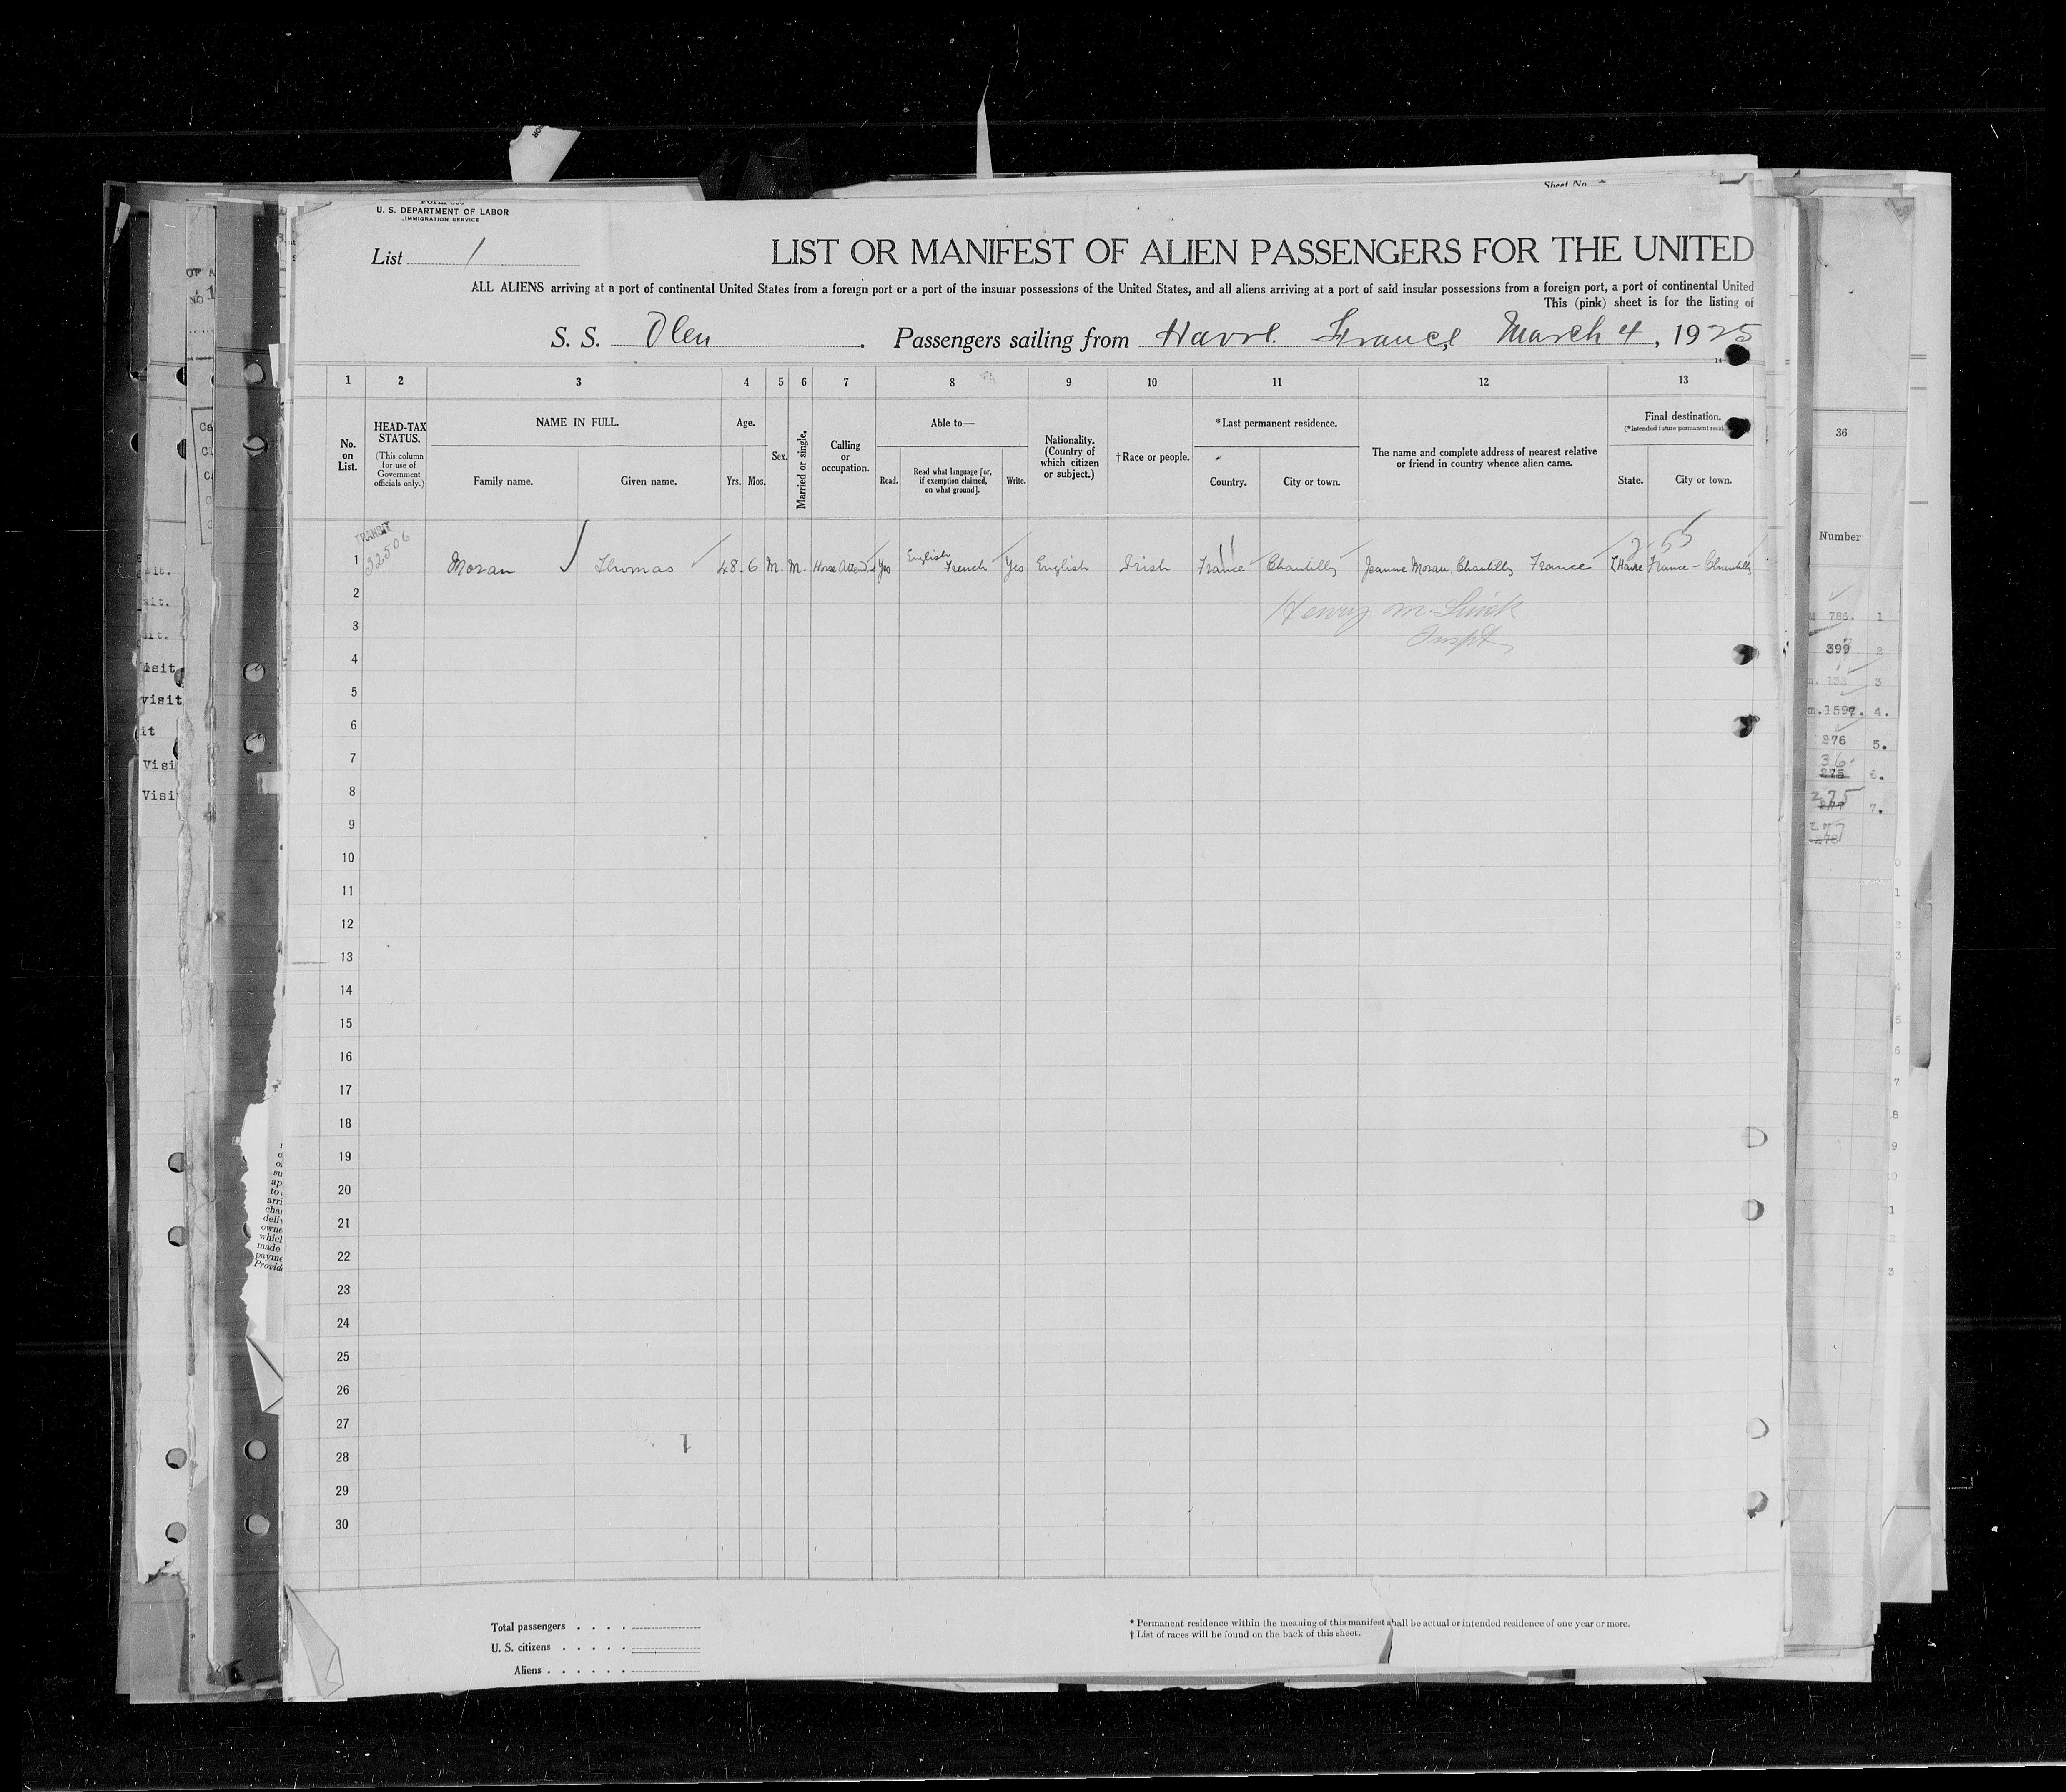 Sheet No.
U. S. DEPARTMENT OF LABOR
IMMIGRATION SERVICE
List 1
LIST OR MANIFEST OF ALIEN PASSENGERS FOR THE UNITED
ALL ALIENS arriving at a port of continental United States from a foreign port or a port of the insular possessions of the United States, and all aliens arriving at a port of said insular possessions from a foreign port, a port of continental United
This (pink) sheet is for the listing of
S. S. Olen . Passengers sailing from Havre. France, March 4, 1925
1 2 3 4 5 6 7 8 9 10 11 12 13
No. on List.
HEAD-TAX STATUS.
(This column for use of Government officials only.)
NAME IN FULL.
Family name. Given name.
Age.
Yrs. Mos.
Sex.
Married or single.
Calling or occupation.
Able to—
Read. Read what language [or, if exemption claimed, on what ground]. Write.
Nationality. (Country of which citizen or subject.)
†Race or people.
*Last permanent residence.
Country. City or town.
The name and complete address of nearest relative or friend in country whence alien came.
Final destination.
(*Intended future permanent
State. City or town.
TRANSIT
32506
2 55
1 Moran Thomas 48 6 M. M. Horse Attend Yes English French Yes English Irish France Chantilly Jeanne Moran. Chantilly France L'Havre France - Chantilly
Henry M.
Inspt
2
3
4
5
6
7
8
9
10
11
12
13
14
15
16
17
18
19
20
21
22
23
24
25
26
27
28
29
30
1
Total passengers
U. S. citizens
Aliens
* Permanent residence within the meaning of this manifest shall be actual or intended residence of one year or more.
† List of races will be found on the back of this sheet.
isit
visit
it
Visi
Visi
made
Provid
36
Number
786. 1
399 2
3
m.1597. 4.
276 5.
36 6.
275 7.
277